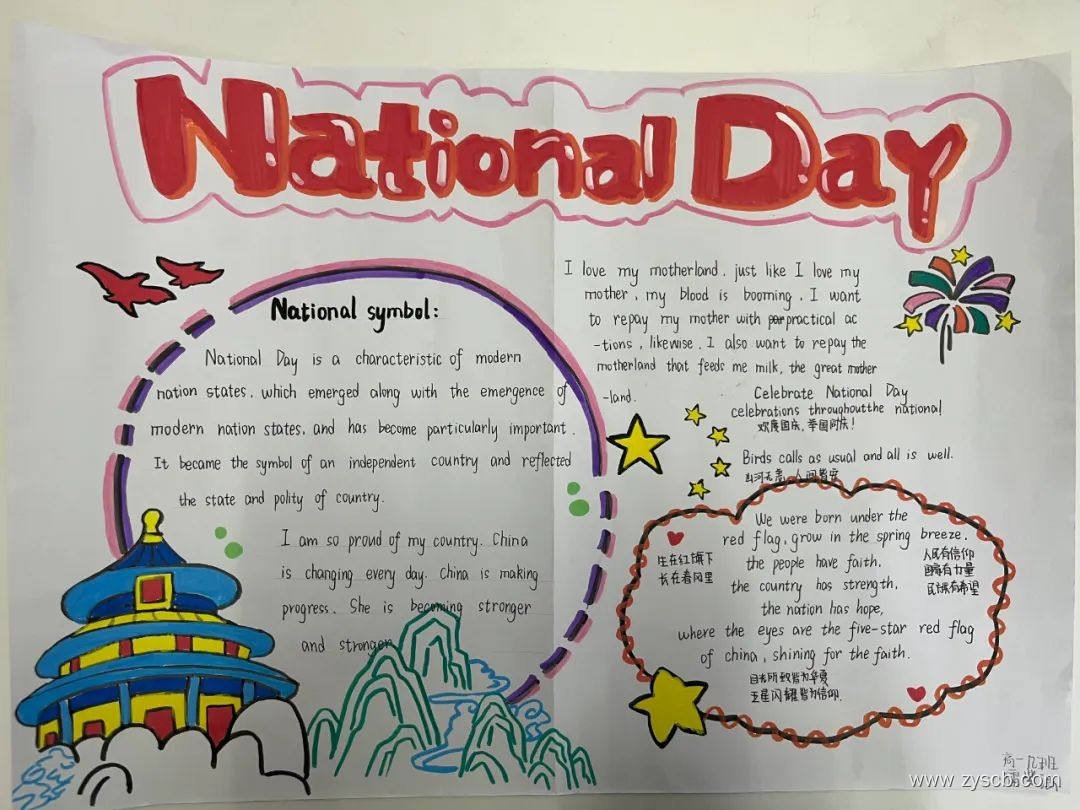 National Day
National symbol:
National Day is a characteristic of modern
nation states, which emerged along with the emergence of
modern nation states, and has become particularly important.
It became the symbol of an independent country and reflected
the state and polity of country.
I am so proud of my country. China
is changing every day. China is making
progress. She is becoming stronger
and stronger
I love my motherland, just like I love my
mother, my blood is booming, I want
to repay my mother with practical ac
-tions, likewise, I also want to repay the
motherland that feeds me milk, the great mother
-land.
Celebrate National Day
celebrations throughout the national!
欢度国庆,举国同庆!
Birds calls as usual and all is well.
山河无恙,人间皆安
We were born under the
red flag, grow in the spring breeze.
the people have faith,
the country has strength,
the nation has hope,
where the eyes are the five-star red flag
of china, shining for the faith.
生在红旗下
长在春风里
人民有信仰
国家有力量
民族有希望
目光所致皆为华夏
五星闪耀皆为信仰.
高一
班
www.zyscb.com